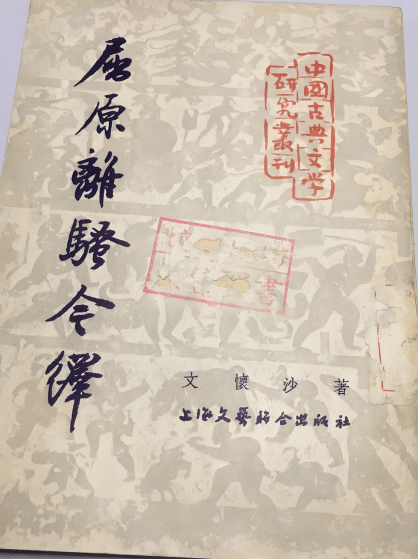 中國古典文学
研究叢刊
屈原離騷今繹
文懷沙著
上海文藝联合出版社
書